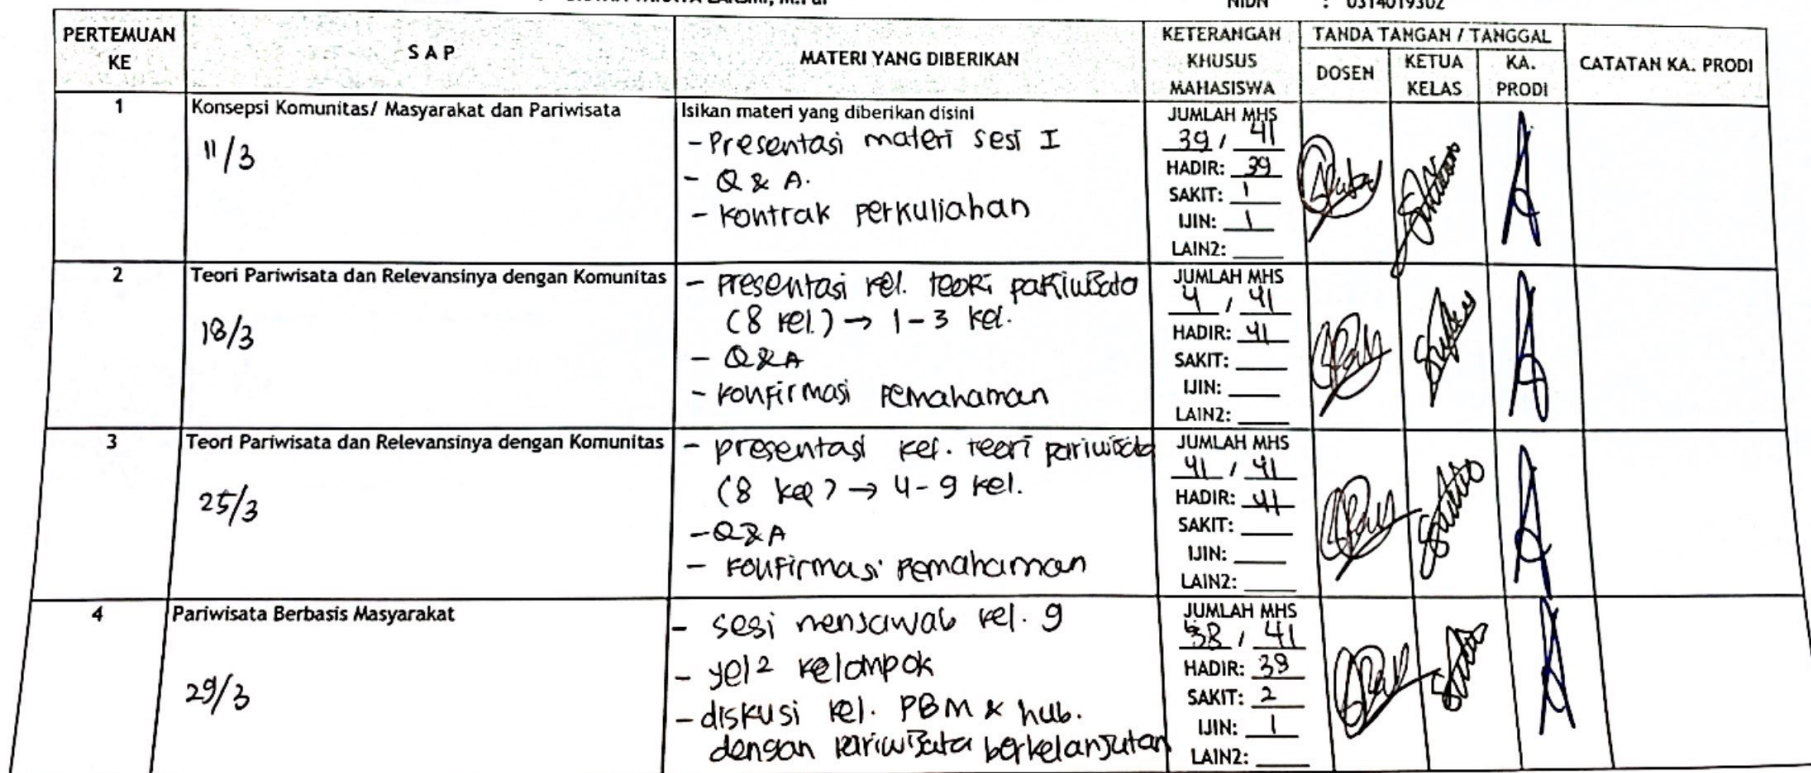 NIDN : 0314019302
PERTEMUAN KE
S A P
MATERI YANG DIBERIKAN
KETERANGAN KHUSUS MAHASISWA
TANDA TANGAN / TANGGAL
DOSEN
KETUA KELAS
KA. PRODI
CATATAN KA. PRODI
1
Konsepsi Komunitas/ Masyarakat dan Pariwisata
11/3
Isikan materi yang diberikan disini
- Presentasi materi sesi I
- Q & A.
- kontrak perkuliahan
JUMLAH MHS
39 / 41
HADIR: 39
SAKIT: 1
IJIN: 1
LAIN2:
2
Teori Pariwisata dan Relevansinya dengan Komunitas
18/3
- presentasi kel. teori pariwisata
(8 kel.) → 1-3 kel.
- Q&A
- konfirmasi pemahaman
JUMLAH MHS
4 / 41
HADIR: 41
SAKIT:
IJIN:
LAIN2:
3
Teori Pariwisata dan Relevansinya dengan Komunitas
25/3
- presentasi kel. teori pariwisata
(8 kel) → 4-9 kel.
- Q&A
- konfirmasi pemahaman
JUMLAH MHS
41 / 41
HADIR: 41
SAKIT:
IJIN:
LAIN2:
4
Pariwisata Berbasis Masyarakat
29/3
- sesi menjawab kel. 9
- yel2 kelompok
- diskusi kel. PBM & hub.
dengan pariwisata berkelanjutan
JUMLAH MHS
38 / 41
HADIR: 38
SAKIT: 2
IJIN: 1
LAIN2: